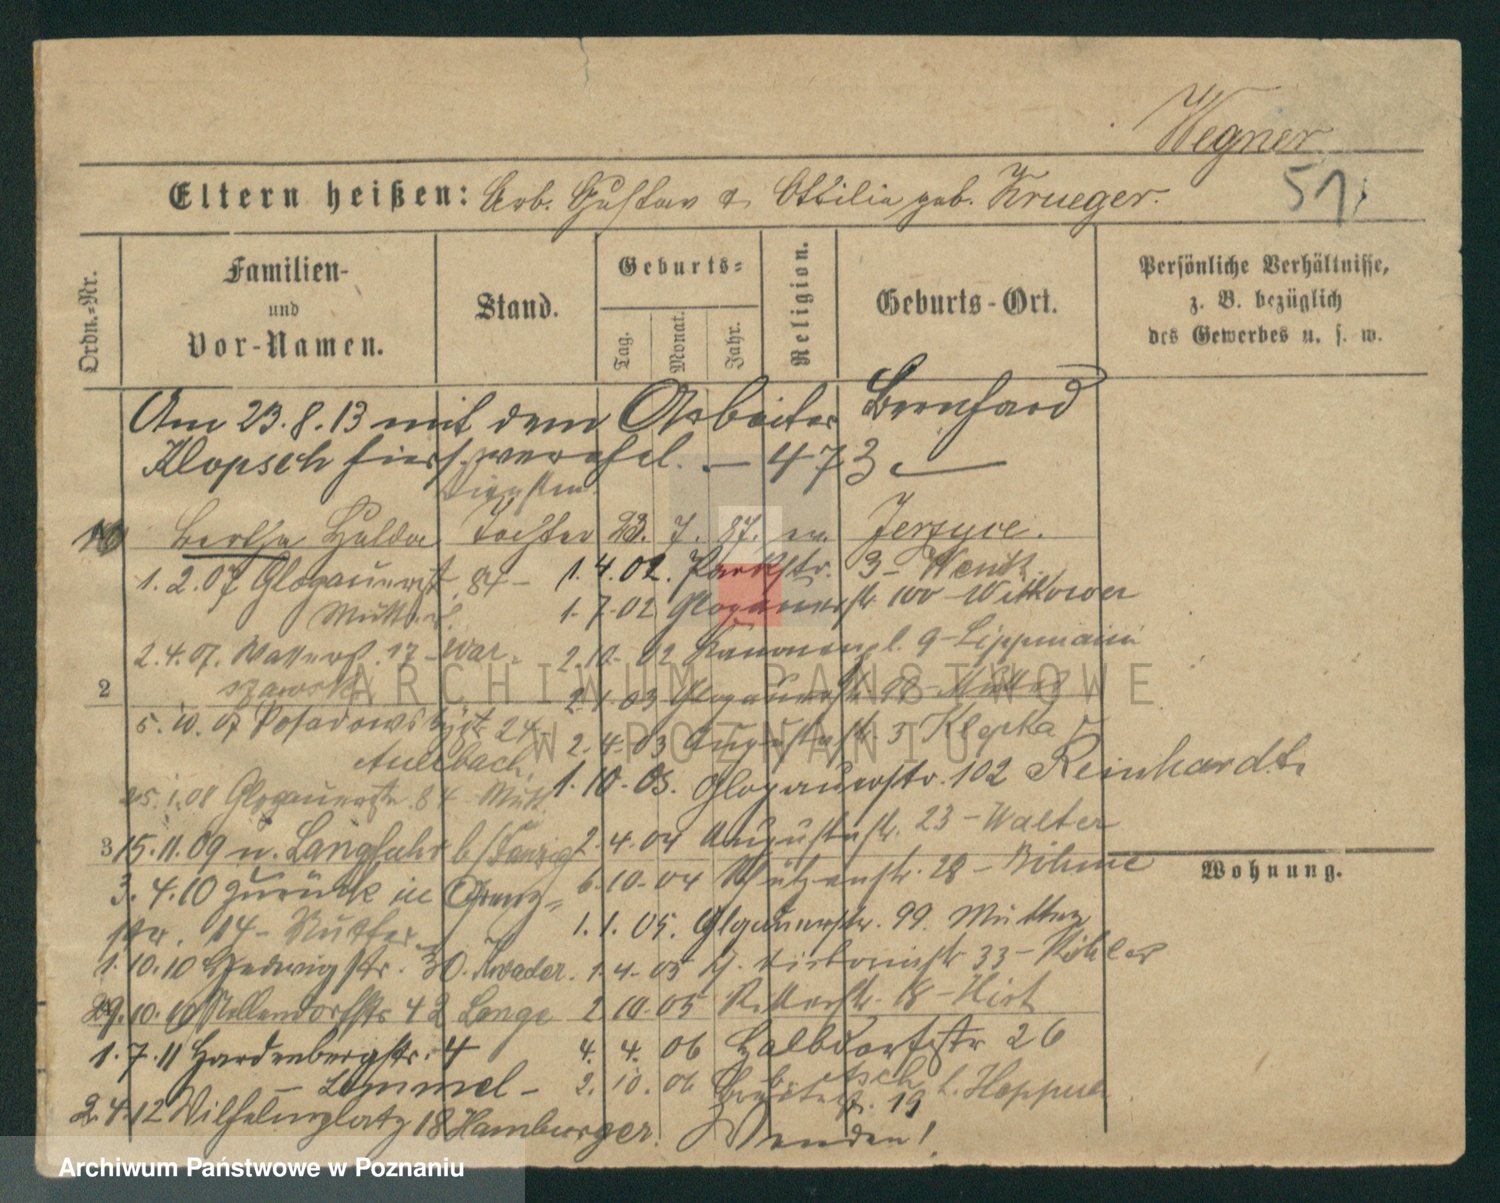 Wegner
Eltern heißen: Arb. Gustav & Ottilie geb. Krueger.
51.
Ordn.-Nr.
Familien-
und
Vor-Namen.
Stand.
Geburts-
Tag.
Monat.
Jahr.
Religion.
Geburts-Ort.
Persönliche Verhältnisse,
z. B. bezüglich
des Gewerbes u. s. w.
Am 23.8.13 mit dem Arbeiter Bernhard
Klopsch hier verehel. — 473 —
Bertha Hulda Tochter 23. 7. 87. ev. Jersyce.
1.2.07 Glogauerstr. 84 -
Mutter
1.4.02. Parkstr. 3 -
1.7.02 Glogauerstr. 100 - Witkower
2.4.07. 17 -
2.10.02 Kanonenpl. 9 - Lippmann
2
2.1.03 Glogauerstr. 98 - Mutter
5.10.07 Posadowskystr. 24 -
Aulbach.
2.4.03 Augustastr. 3 Klopka
1.10.03. Glogauerstr. 102 Reinhardt.
25.1.08 Glogauerstr. 84 - Mutt.
3
15.11.09 n. Langfuhr b/Danzig
2.4.04 Augustastr. 23 - Walter
3.4.10 zurück in Grenz-
str. 14 - Mutter.
6.10.04 Schützenstr. 28 - Böhme
1.1.05. Glogauerstr. 99. Mutter
1.10.10 Hedwigstr. 30. Kwader.
1.4.05 33 - Köhler
29.10.10 42 Lange
2.10.05 Ritterstr. 18 - Hirt
1.7.11 Hardenbergstr. 4
- Lemmel -
4.4.06 Halbdorfstr 26
2.10.06 19
2.4.12 Wilhelmplatz 18 Hamburger.
Wenden!
Wohnung.
ARCHIWUM PAŃSTWOWE
W POZNANIU
Archiwum Państwowe w Poznaniu